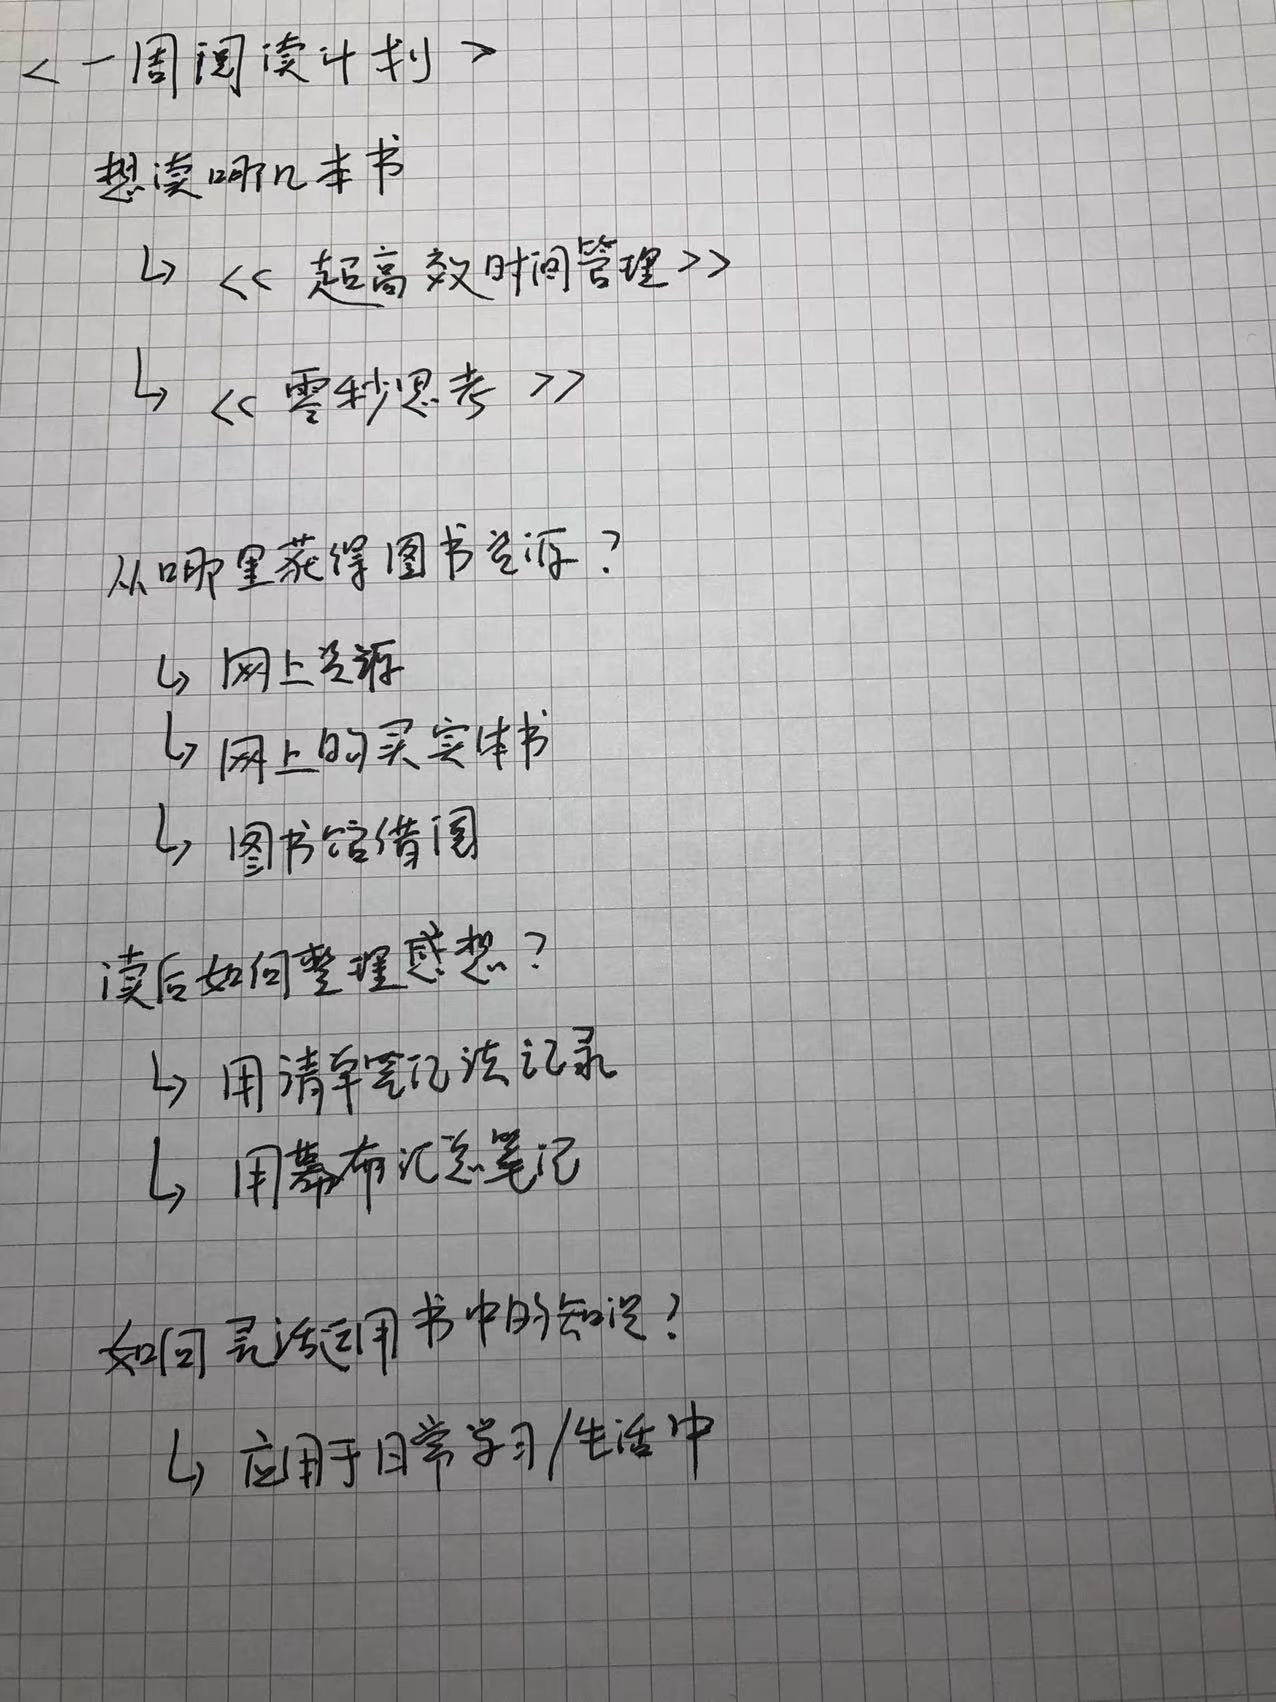 <一周阅读计划>
想读哪几本书
↳ <<超高效时间管理>>
↳ <<零秒思考>>
从哪里获得图书资源?
↳ 网上资源
↳ 网上的买实体书
↳ 图书馆借阅
读后如何整理感想?
↳ 用清单笔记法记录
↳ 用幕布汇总笔记
如何灵活运用书中的知识?
↳ 应用于日常学习/生活中